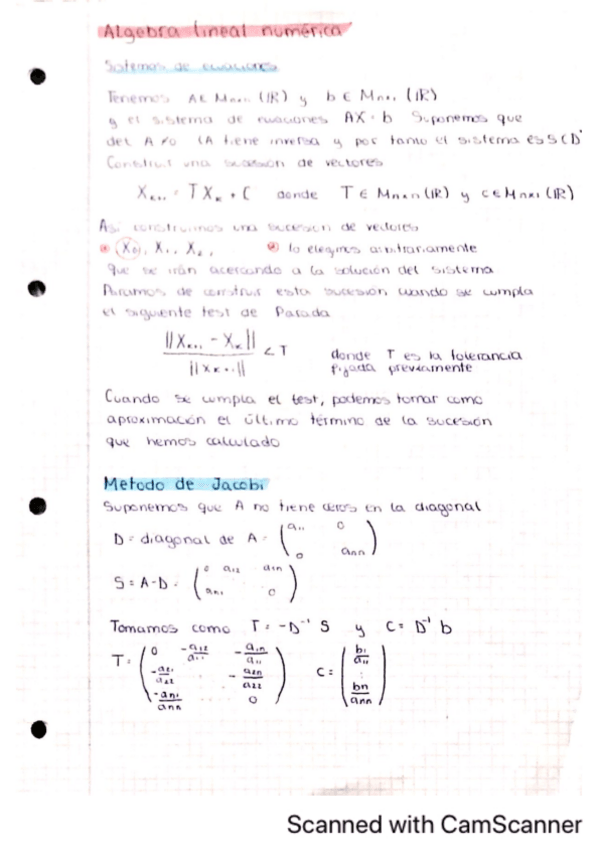 Algebra lineal numérica
Sistemas de ecuaciones
Tenemos A ∈ Mn×n (IR) y b ∈ Mn×1 (IR)
y el sistema de ecuaciones AX = b Suponemos que
det A ≠ 0 (A tiene inversa y por tanto el sistema es SCD
Construir una sucesión de vectores
Xk+1 = TXk + C donde T ∈ Mn×n (IR) y c ∈ Mn×1 (IR)
Así construimos una sucesión de vectores
X0, X1, X2, lo elegimos arbitrariamente
que se irán acercando a la solución del sistema
Paramos de construir esta sucesión cuando se cumpla
el siguiente test de Parada
||Xk+1 - Xk|| / ||Xk+1|| < T donde T es la tolerancia
fijada previamente
Cuando se cumpla el test, podemos tomar como
aproximación el último término de la sucesión
que hemos calculado
Metodo de Jacobi
Suponemos que A no tiene ceros en la diagonal
D = diagonal de A = (a11 0
0 ann)
S = A - D = (0 a12 a1n
an1 0)
Tomamos como T = -D⁻¹ S y C = D⁻¹ b
T = (0 -a12/a11 -a1n/a11
-a21/a22 -a2n/a22
-an1/ann 0) C = (b1/a11 : bn/ann)
Scanned with CamScanner